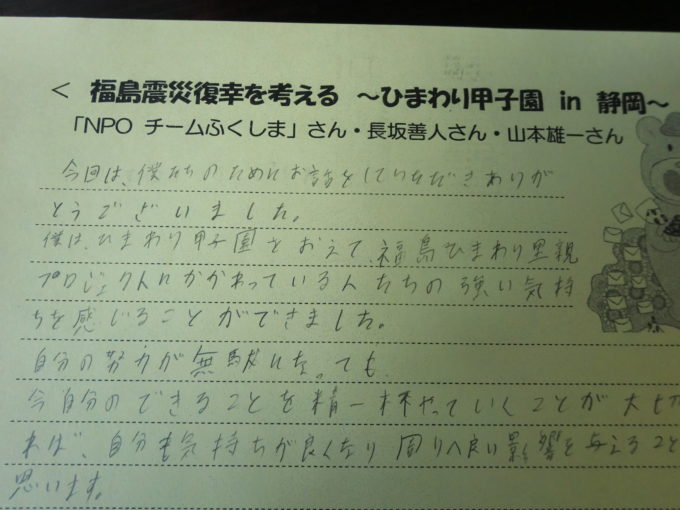 < 福島震災復幸を考える ～ひまわり甲子園 in 静岡～
「NPO チームふくしま」さん・長坂善人さん・山本雄一さん
今回は、僕たちのためにお話をしていただきありが
とうございました。
僕は、ひまわり甲子園をおえて、福島ひまわり里親
プロジェクトにかかわっている人たちの強い気持
ちを感じることができました。
自分の努力が無駄になっても
今自分のできることを精一杯やっていくことが大切
れば、自分も気持ちが良くなり周りへ良い影響を与えること
思います。